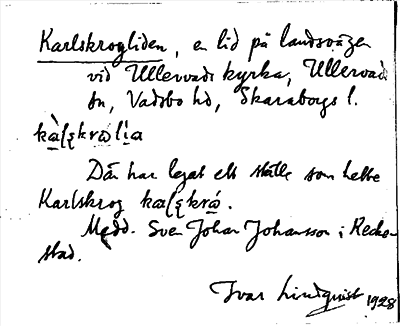 Karlskrogliden, en lid på landsvägen
vid Ullervads kyrka, Ullervads
sn, Vadsbo hd, Skaraborgs l.
Där har legat ett ställe som hette
Karlskrog
Medd. Sven Johan Johansson i Recke-
stad.
Ivar Lindquist 1928